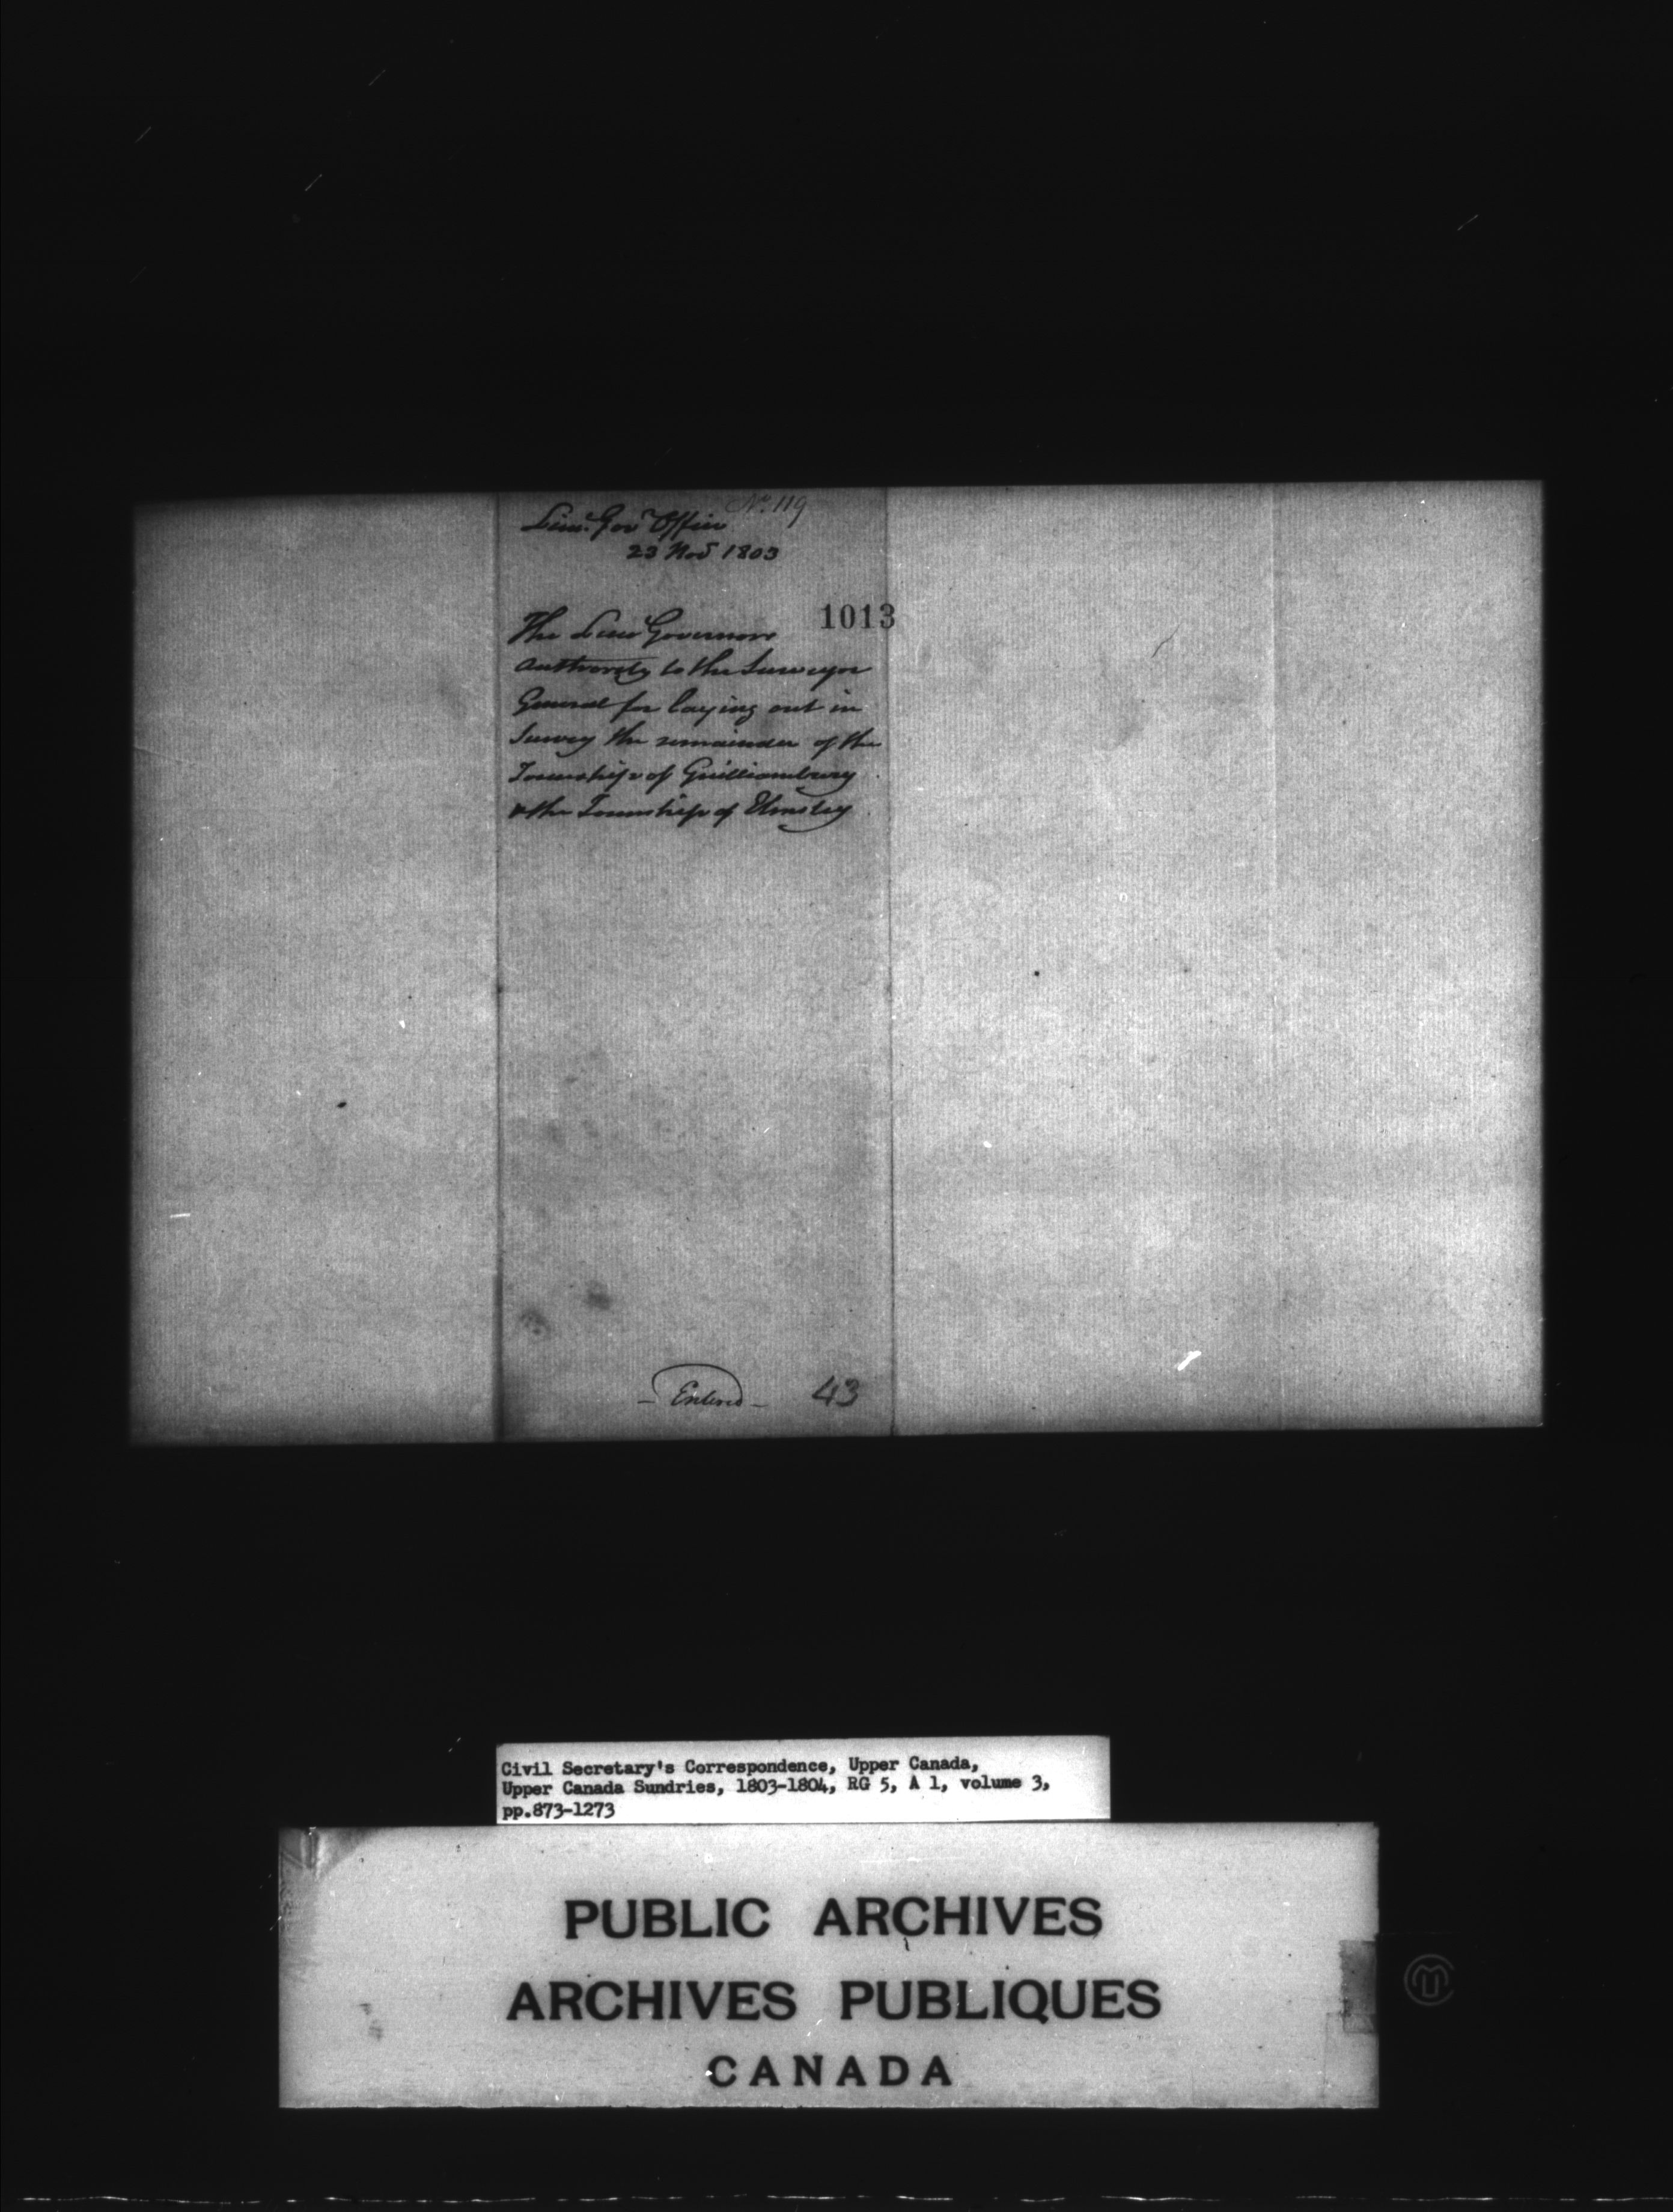 No. 119
Lieut. Govr. Office
23 Novr 1803
1013
The Lieut Governors
authority to the Surveyor
General for laying out in
Survey the remainder of the
Township of Guilliambury
& the Township of Elmsley
Entered
43
Civil Secretary's Correspondence, Upper Canada,
Upper Canada Sundries, 1803-1804, RG 5, A 1, volume 3,
pp.873-1273
PUBLIC ARCHIVES
ARCHIVES PUBLIQUES
CANADA